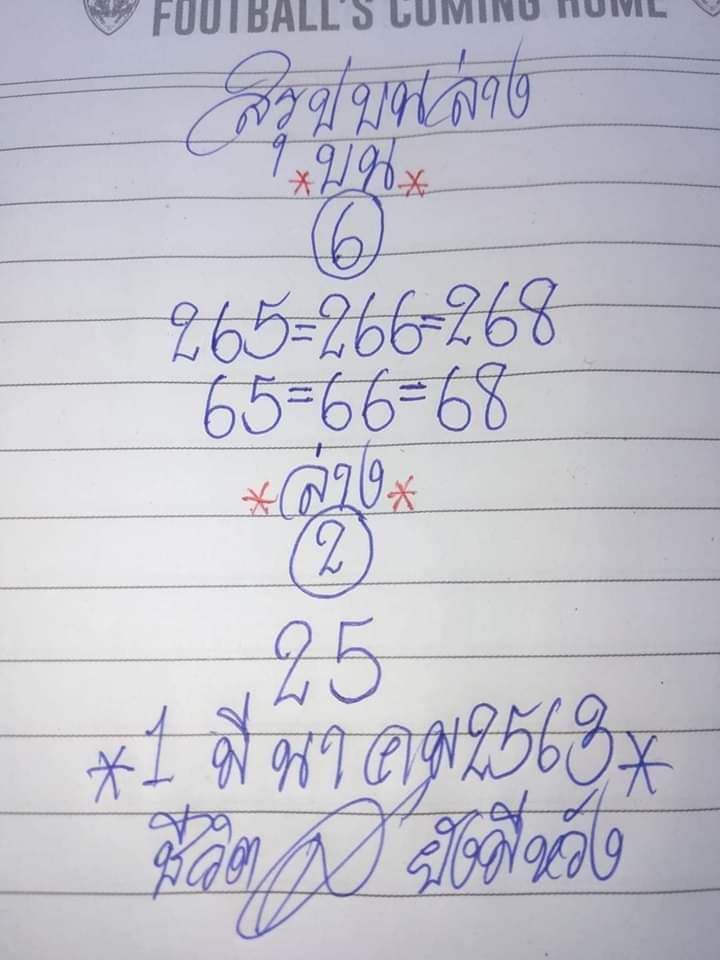 FOOTBALL'S COMING HOME
สรุปบนล่าง
*บน*
6
265=266=268
65=66=68
*ล่าง*
2
25
*1 มีนาคม2563*
ชีวิต ยังมีหวัง